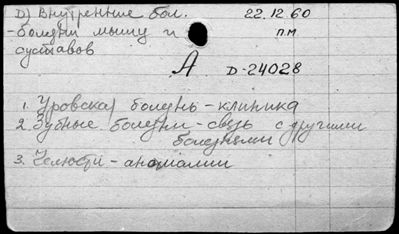 D) Внутренние бол. 22.12.60
- болезни мышц и пм
суставов
А D-24028
1. Уровская болезнь - клиника
2. Зубные болезни - связь с другими
болезнями
3. Челюсти - аномалии